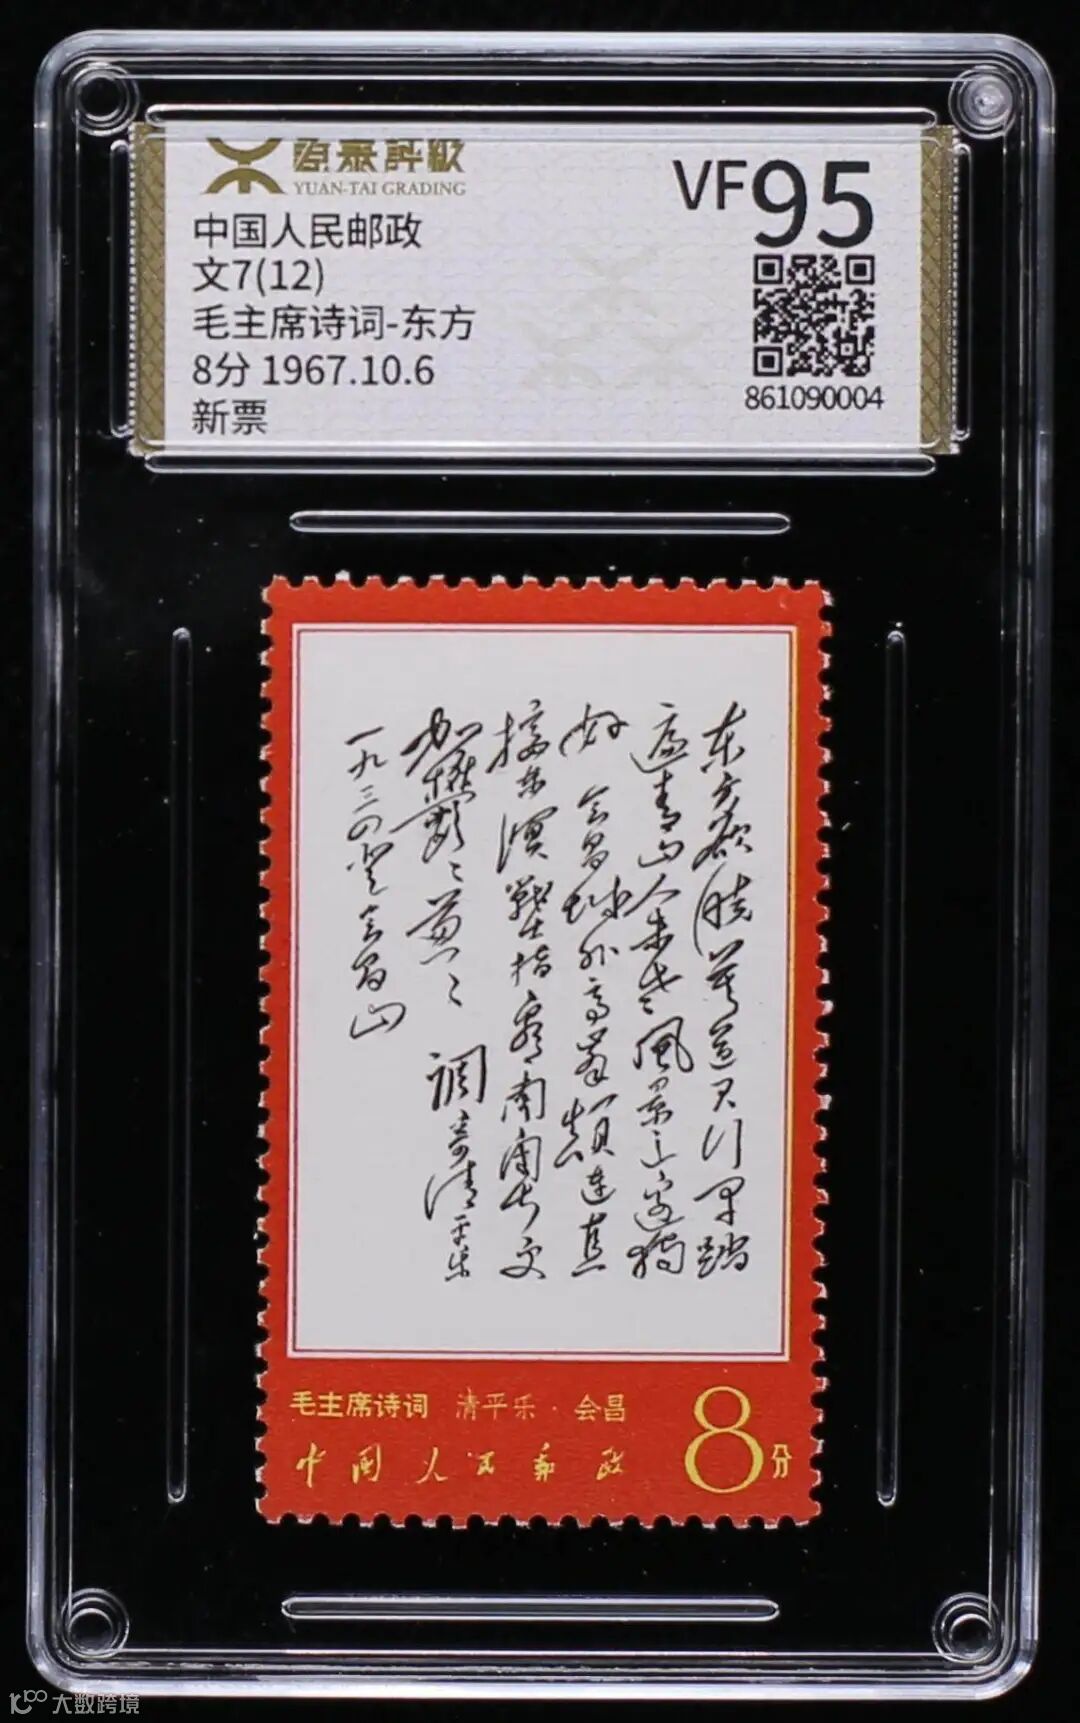 原泰評級
YUAN-TAI GRADING
中国人民邮政
文7(12)
毛主席诗词-东方
8分 1967.10.6
新票
VF95
861090004
东方欲晓莫道君行早踏
遍青山人未老风景这边独
好 会昌城外高峯颠连直
接东溟戰士指看南粤更
加欝〻葱〻 調寄清平乐
一九三四登会昌山
毛主席诗词 清平乐·会昌
中国人民邮政
8分
大数跨境